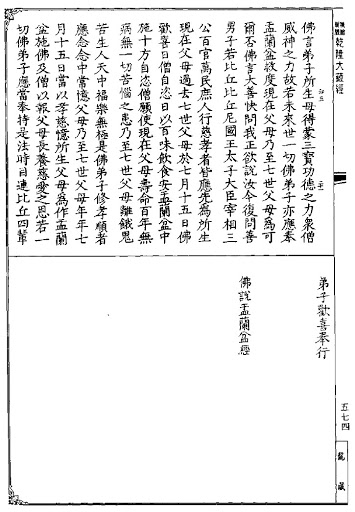 乾隆大藏經
佛言弟子所生母得蒙三寶功德之力衆僧
威神之力故若未來世一切佛弟子亦應奉
盂蘭盆救度現在父母乃至七世父母爲可
爾否佛言大善快問我正欲說汝今復問善
男子若比丘比丘尼國王太子大臣宰相三
公百官萬民庶人行慈孝者皆應先爲所生
現在父母過去七世父母於七月十五日佛
歡喜日僧自恣日以百味飲食安盂蘭盆中
施十方自恣僧願使現在父母壽命百年無
病無一切苦惱之患乃至七世父母離餓鬼
苦生人天中福樂無極是佛弟子修孝順者
應念念中常憶父母乃至七世父母年年七
月十五日當以孝慈憶所生父母爲作盂蘭
盆施佛及僧以報父母長養慈愛之恩若一
切佛弟子應當奉持是法時目連比丘四輩
弟子歡喜奉行
佛說盂蘭盆經
五七四
龍藏